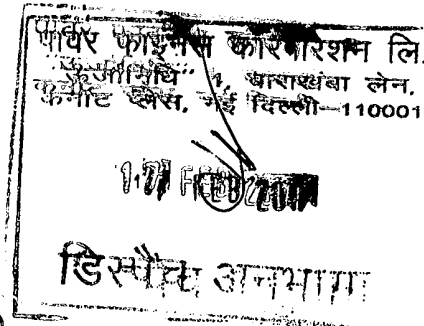 पावर फाइनेंस कारपोरेशन लि.
"ऊर्जानिधि" 1, बाराखंबा लेन,
कनॉट प्लेस, नई दिल्ली–110001
17 FEB
डिस्पैच अनुभाग